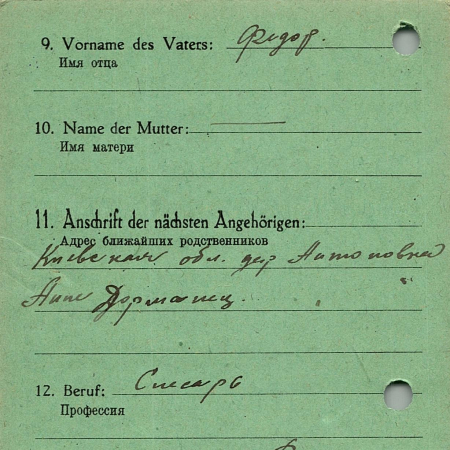 9. Vorname des Vaters: Федор.
Имя отца
10. Name der Mutter: —
Имя матери
11. Anschrift der nächsten Angehörigen:
Адрес ближайших родственников
Киевская обл. дер Антоновка
Дорманец
12. Beruf: Слесарь
Профессия